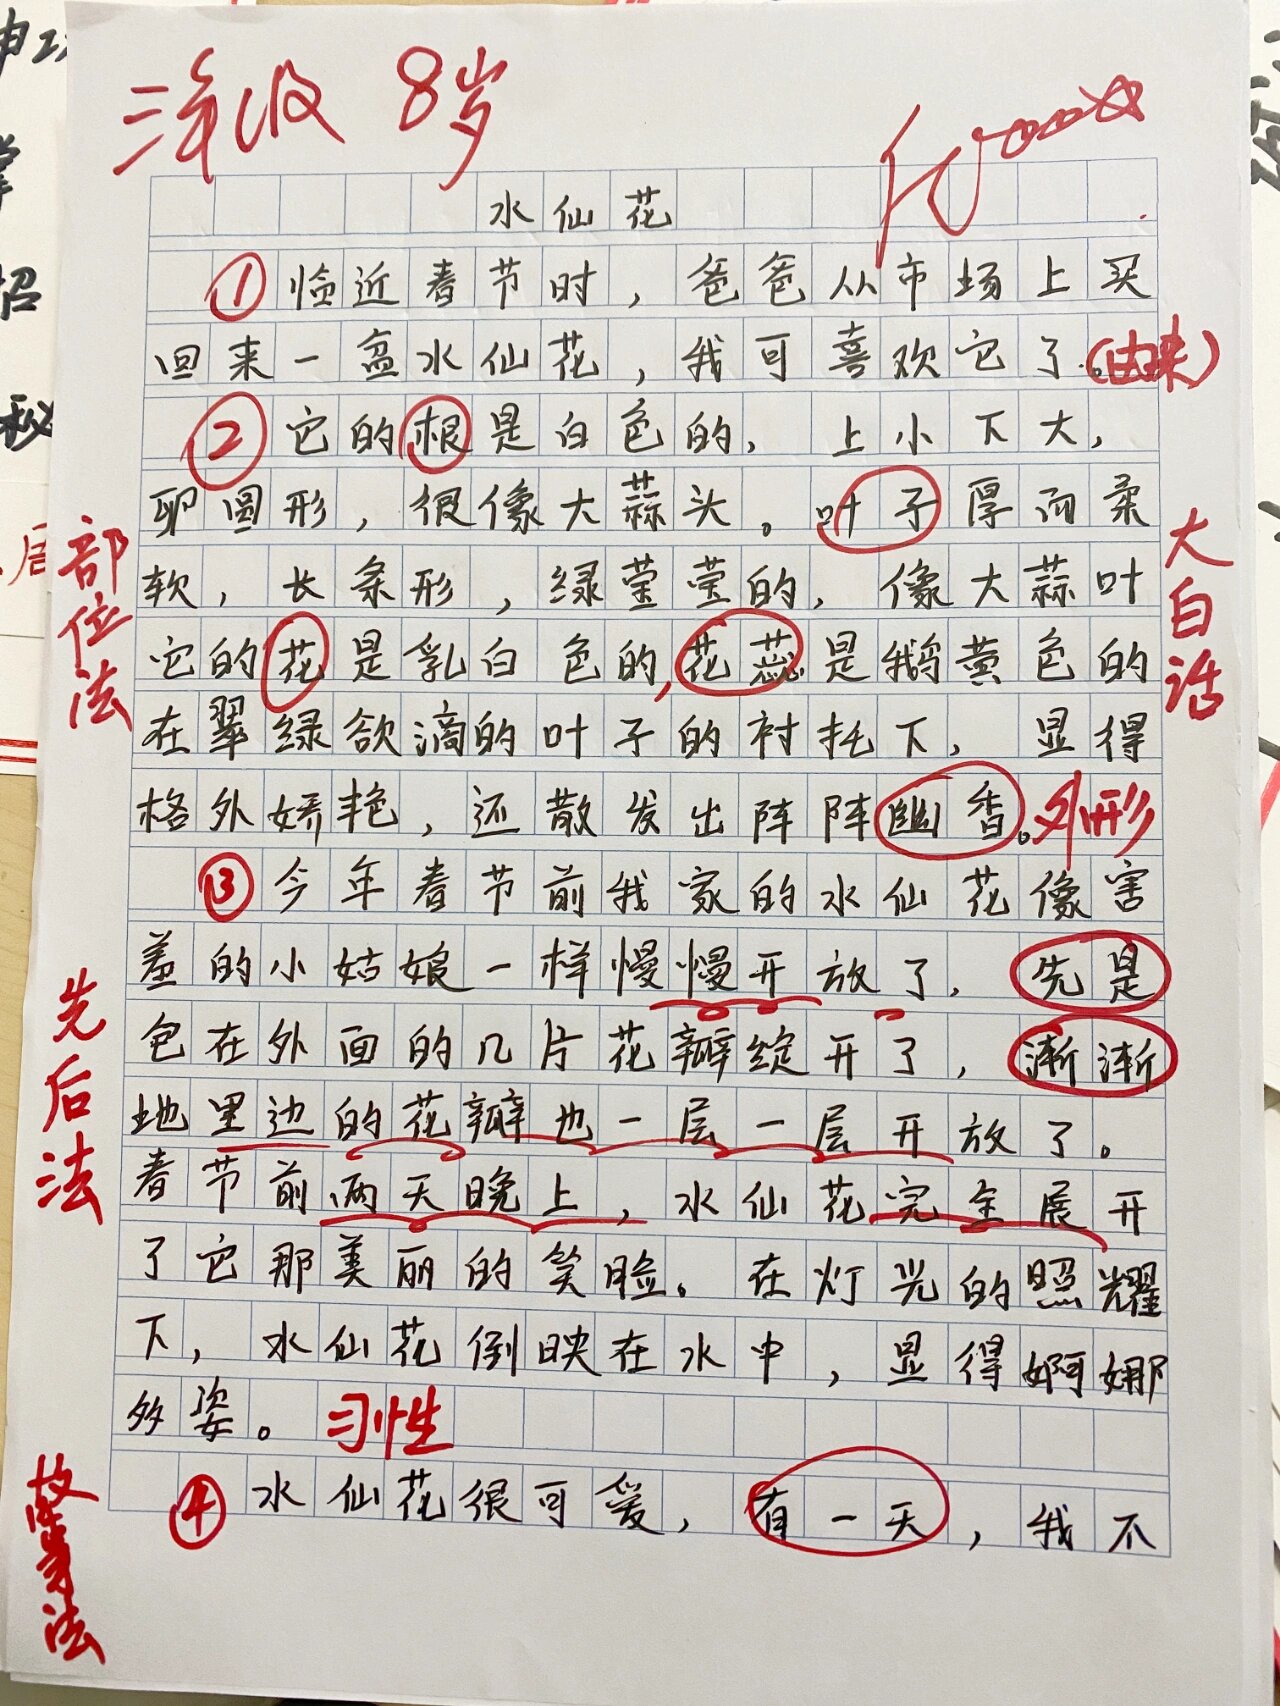 8岁
水仙花
①临近春节时，爸爸从市场上买
回来一盆水仙花，我可喜欢它了。(由来)
②它的根是白色的，上小下大，
卵圆形，很像大蒜头。叶子厚而柔
部位法
大白话
软，长条形，绿莹莹的，像大蒜叶
它的花是乳白色的，花蕊是鹅黄色的
在翠绿欲滴的叶子的衬托下，显得
格外娇艳，还散发出阵阵幽香。外形
③今年春节前我家的水仙花像害
羞的小姑娘一样慢慢开放了，先是
先后法
包在外面的几片花瓣绽开了，渐渐
地里边的花瓣也一层一层开放了。
春节前两天晚上，水仙花完全展开
了它那美丽的笑脸。在灯光的照耀
下，水仙花倒映在水中，显得婀娜
多姿。习性
④水仙花很可爱，有一天，我不
故事法